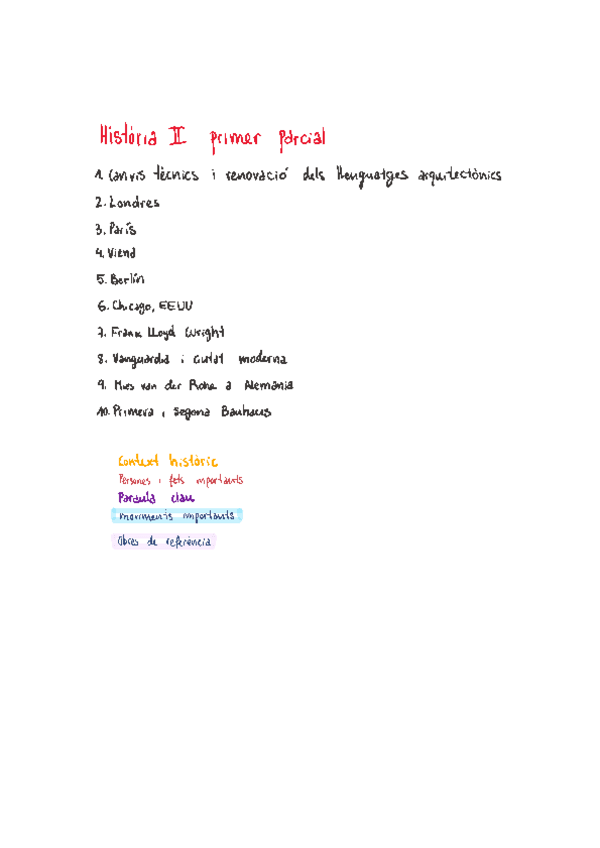 Història II primer parcial
1. Canvis tècnics i renovació dels llenguatges arquitectònics
2. Londres
3. París
4. Viena
5. Berlín
6. Chicago, EEUU
7. Frank Lloyd Wright
8. Vanguardia i ciutat moderna
9. Mies van der Rohe a Alemania
10. Primera i Segona Bauhaus
Context històric
Persones i fets importants
Paraula clau
moviments importants
Obres de referència